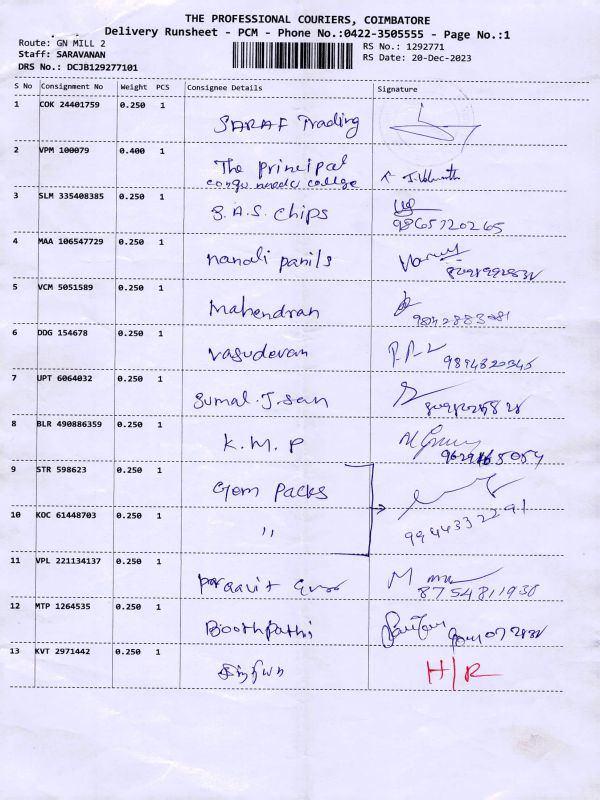 THE PROFESSIONAL COURIERS, COIMBATORE
Delivery Runsheet - PCM - Phone No.:0422-3505555 - Page No.:1
Route: GN MILL 2
RS No.: 1292771
Staff: SARAVANAN
RS Date: 20-Dec-2023
DRS No.: DCJB129277101
S No Consignment No Weight PCS Consignee Details Signature
1 COK 24401759 0.250 1 SARAF Trading
2 VPM 100079 0.400 1 The principal
college
3 SLM 335408385 0.250 1 S.A.S. chips
9865720265
4 MAA 106547729 0.250 1
5 VCM 5051589 0.250 1 Mahendran
6 DDG 154678 0.250 1 vasudevan
9894820345
7 UPT 6064032 0.250 1
8 BLR 490886359 0.250 1 K.M.P
9 STR 598623 0.250 1 Gem Packs
10 KOC 61448703 0.250 1 "
9944332291
11 VPL 221134137 0.250 1
8754811938
12 MTP 1264535 0.250 1 Boothpathi
13 KVT 2971442 0.250 1 H/R